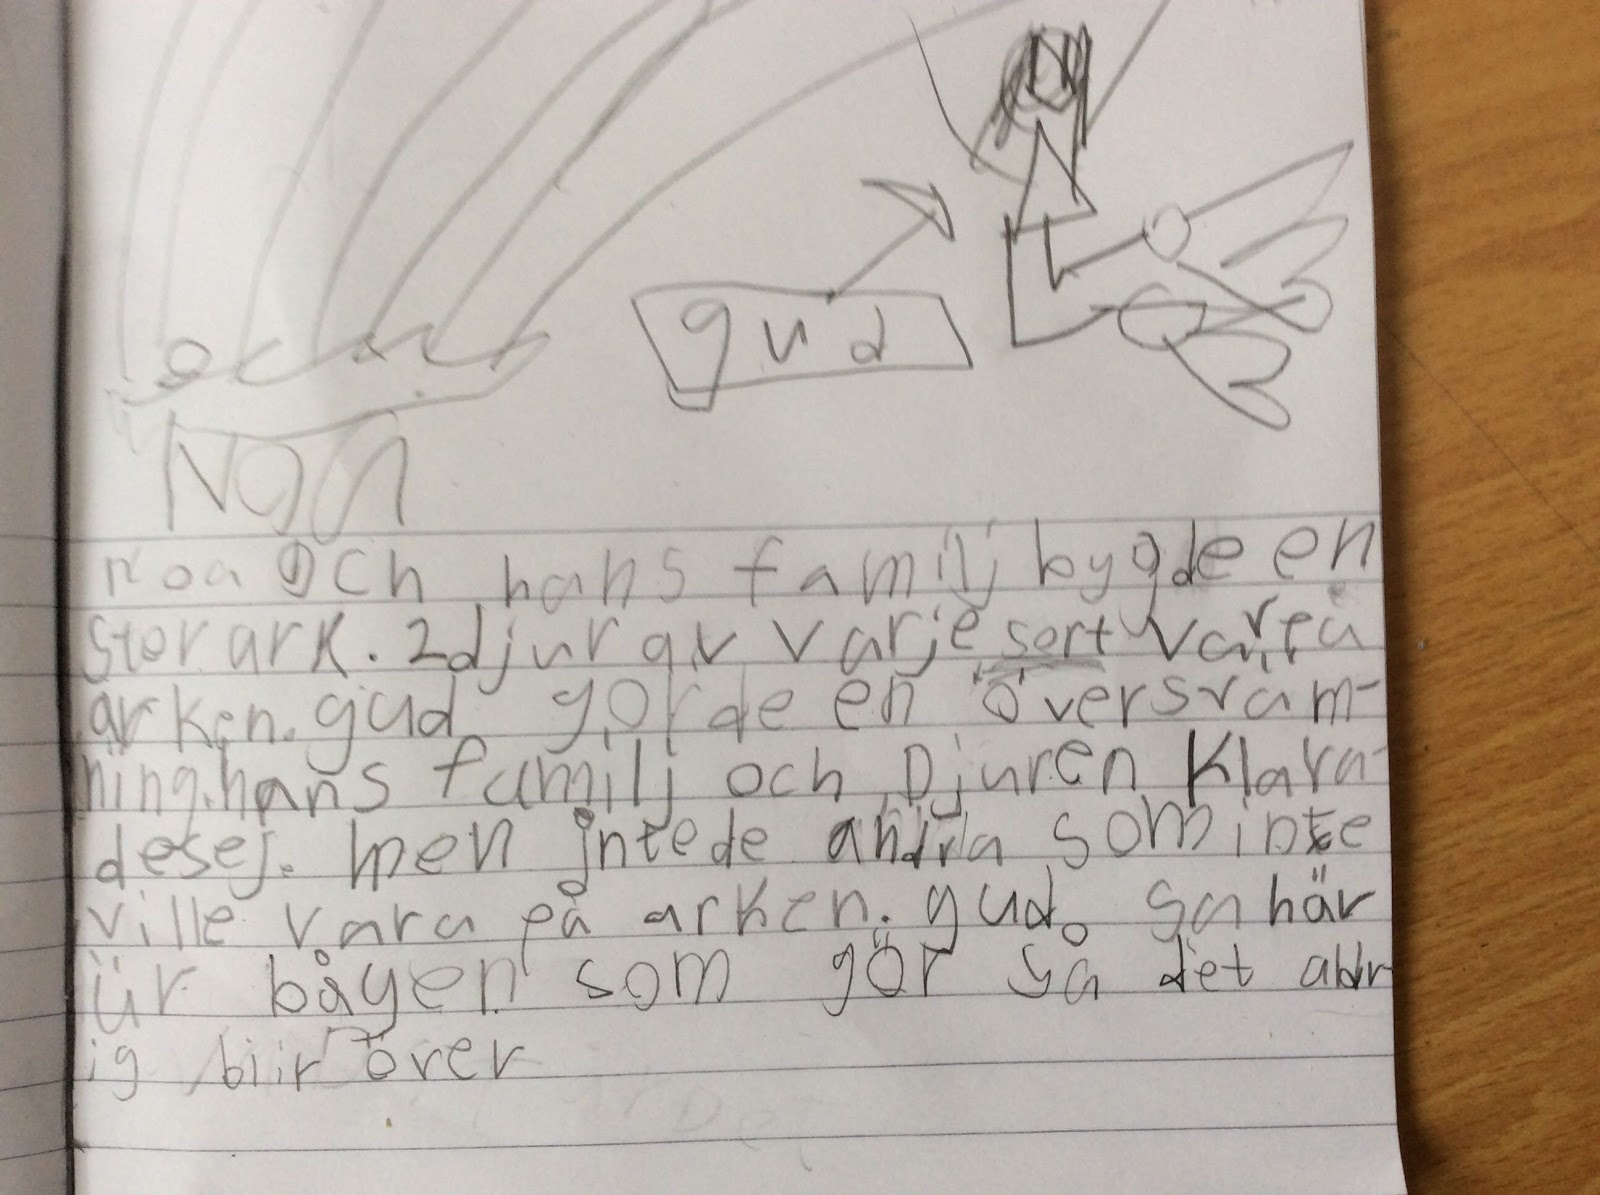 gud
Noa
noa och hans familj bygde en
stor ark. 2 djur av varje sort var på
arken. gud gorde en översväm-
ning. hans familj och Djuren klara-
desej. men inte de andra som inte
ville vara på arken. gud sa här
är bågen som gör så det aldr
ig blir över